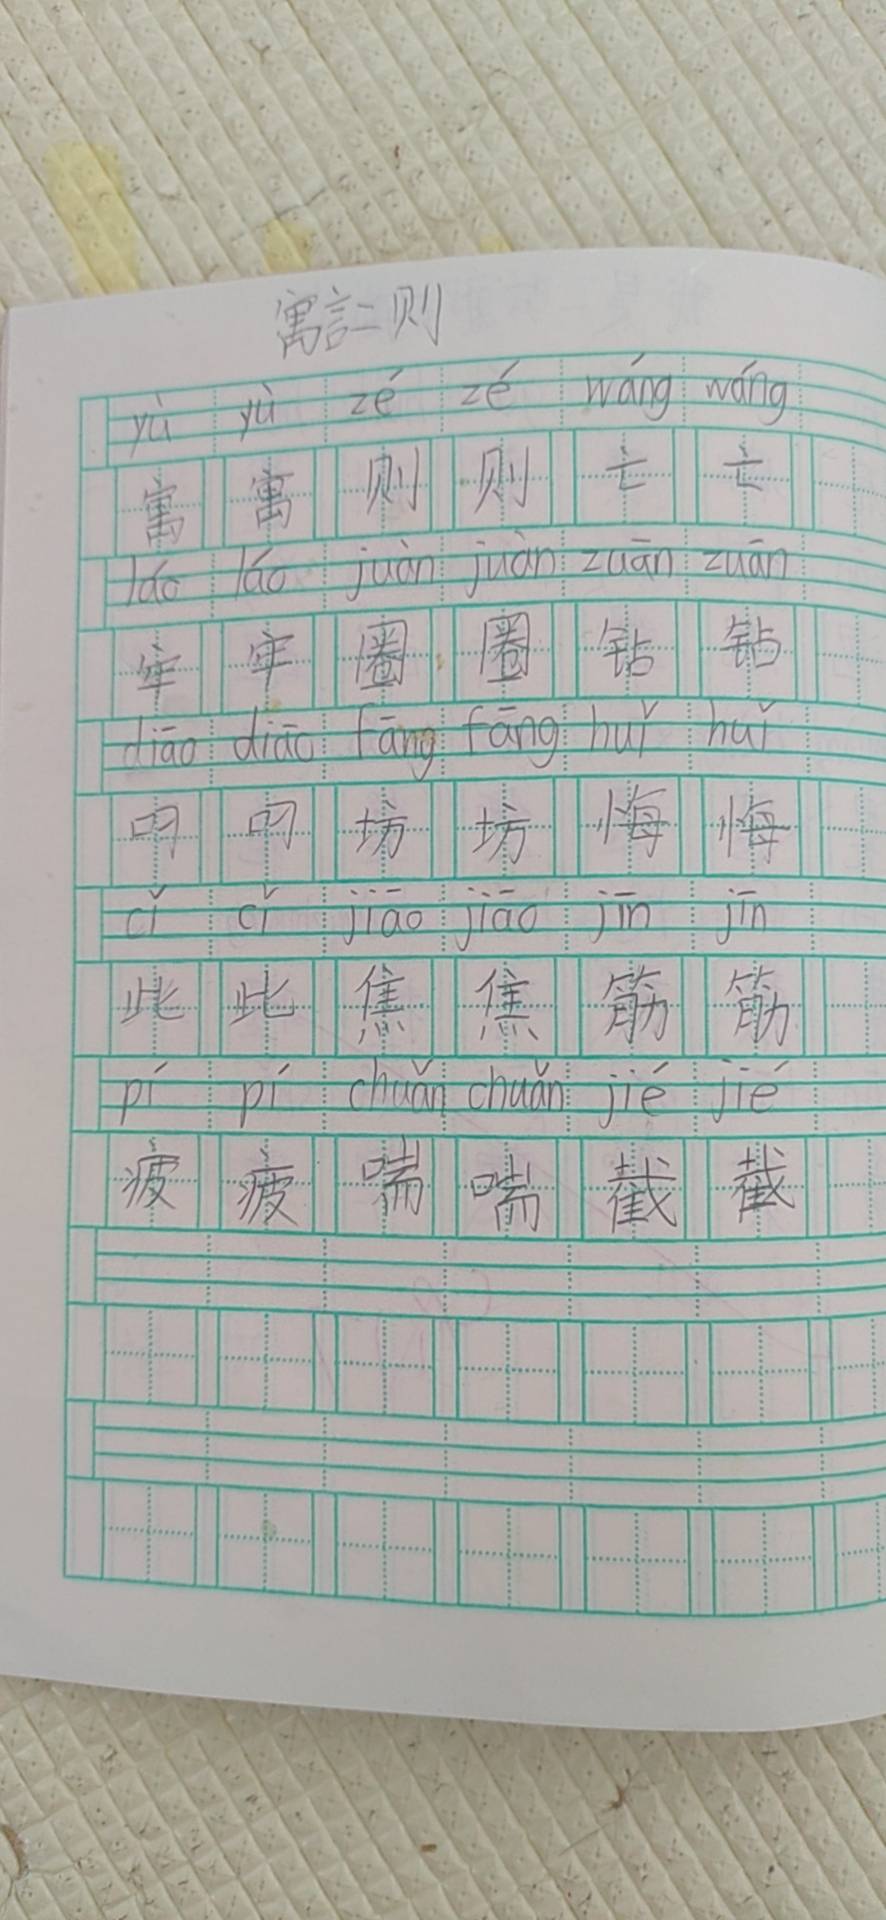 寓言二则
yù yù zé zé wáng wáng
寓 寓 则 则 亡 亡
láo láo juàn juàn zuān zuān
牢 牢 圈 圈 钻 钻
diāo diāo fāng fāng huǐ huǐ
叼 叼 坊 坊 悔 悔
cǐ cǐ jiāo jiāo jīn jīn
此 此 焦 焦 筋 筋
pí pí chuǎn chuǎn jié jié
疲 疲 喘 喘 截 截